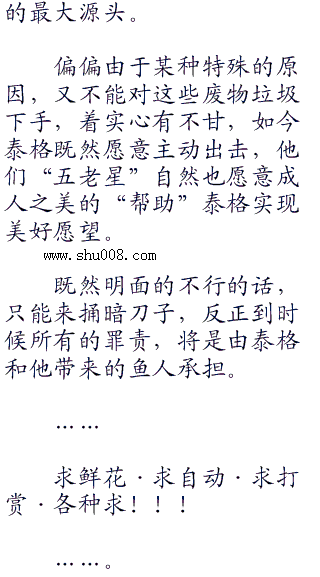 的最大源头。
偏偏由于某种特殊的原
因，又不能对这些废物垃圾
下手，着实心有不甘，如今
泰格既然愿意主动出击，他
们“五老星”自然也愿意成
人之美的“帮助”泰格实现
美好愿望。
www.shu008.com
既然明面的不行的话，
只能来捅暗刀子，反正到时
候所有的罪责，将是由泰格
和他带来的鱼人承担。
……
求鲜花·求自动·求打
赏·各种求！！！
……。